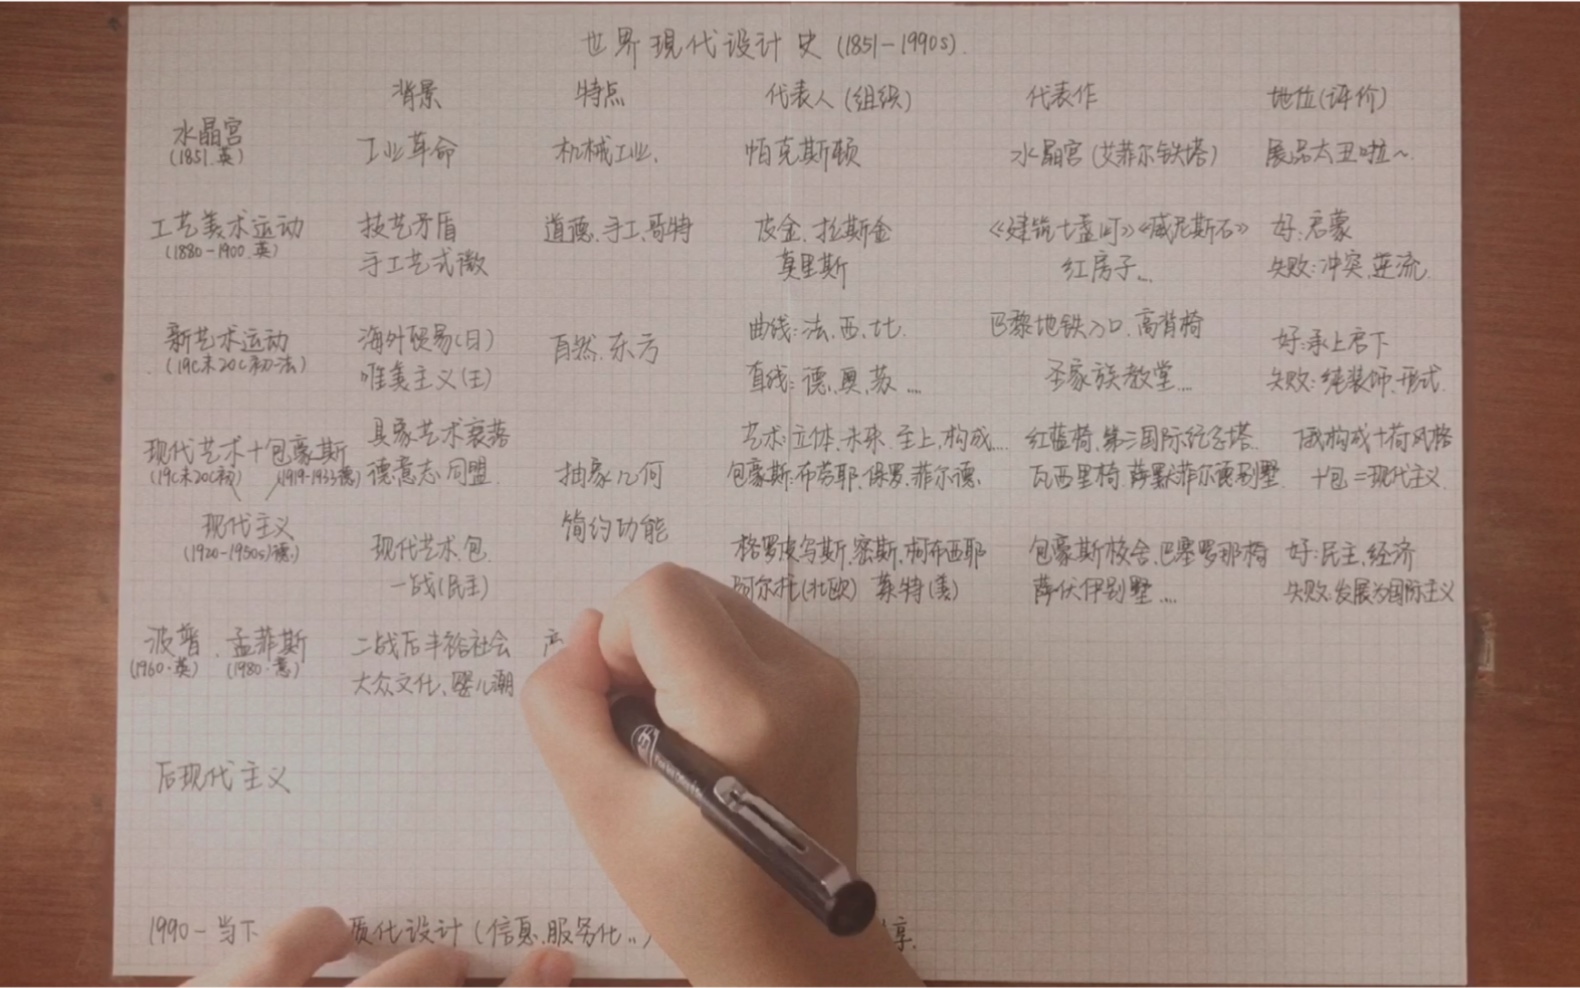 世界现代设计史(1851-1990s).
背景 特点 代表人(组织) 代表作 地位(评价)
水晶宫 工业革命 机械工业、 帕克斯顿 水晶宫(艾菲尔铁塔) 展品太丑啦~.
(1851.英)
工艺美术运动 技艺矛盾 道德.手工.哥特 皮金、拉斯金 《建筑七盏灯》《威尼斯石》 好:启蒙
(1880-1900.英) 手工艺式微 莫里斯 红房子... 失败:冲突.逆流.
新艺术运动 海外贸易(日) 自然.东方 曲线:法.西.比. 巴黎地铁入口.高背椅 好:承上启下
(19c末20c初·法) 唯美主义(王) 直线:德.奥.苏.... 圣家族教堂... 失败:纯装饰.形式.
现代艺术+包豪斯 具象艺术衰落 艺术:立体.未来.至上.构成... 红蓝椅.第三国际纪念塔. 俄构成+荷风格
(19c末20c初) (1919-1933德) 德意志.同盟. 抽象几何 包豪斯:布劳耶.保罗.菲尔德. 瓦西里椅.萨默菲尔德别墅. +包=现代主义.
现代主义 现代艺术.包. 简约功能 格罗皮乌斯.密斯.柯布西耶 包豪斯校舍.巴塞罗那椅 好:民主.经济
(1920-1950s)德.) 一战(民主) 阿尔托(北欧) 莱特(美) 萨伏伊别墅.... 失败:发展为国际主义
波普.孟菲斯 二战后丰裕社会
(1960·英) (1980·意) 大众文化.婴儿潮
后现代主义
1990-当下 质化设计(信息.服务化..) 享.